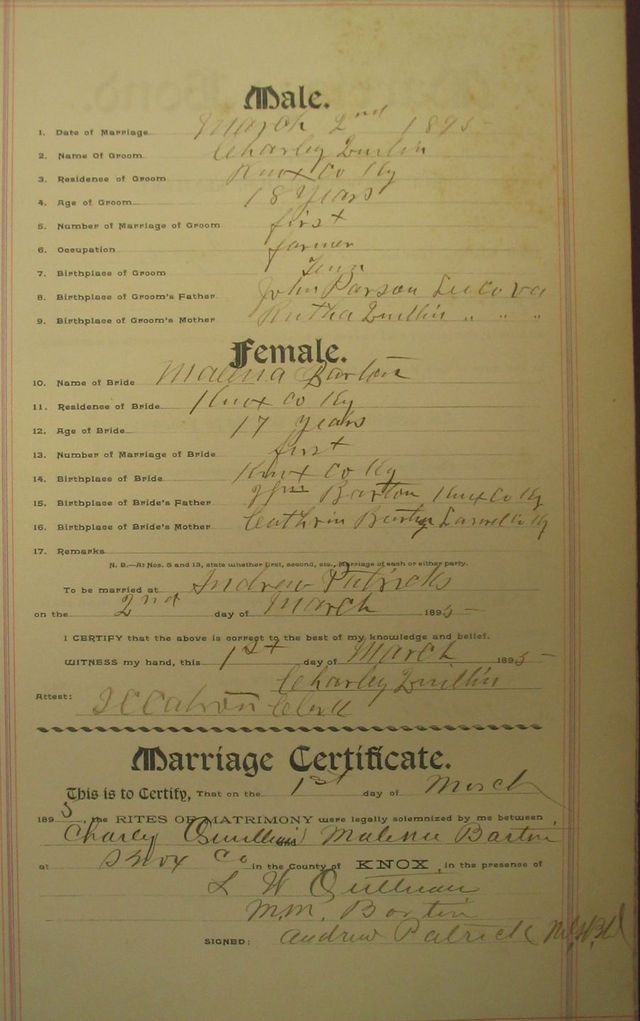 Male.
1. Date of Marriage March 2nd 1895
2. Name Of Groom Charley Quillin
3. Residence of Groom Knox Co Ky
4. Age of Groom 18 Years
5. Number of Marriage of Groom first
6. Occupation farmer
7. Birthplace of Groom Tenn
8. Birthplace of Groom's Father John Parson Lee Co Va
9. Birthplace of Groom's Mother Rutha Quillin " " "
Female.
10. Name of Bride Malena Barton
11. Residence of Bride Knox Co Ky
12. Age of Bride 17 years
13. Number of Marriage of Bride first
14. Birthplace of Bride Knox Co Ky
15. Birthplace of Bride's Father Barton Knox Co Ky
16. Birthplace of Bride's Mother Cathrin Laurel Co Ky
17. Remarks
N. B.—At Nos. 5 and 13, state whether first, second, etc., Marriage of each or either party.
To be married at Andrew Patricks
on the 2nd day of March 1895
I CERTIFY that the above is correct to the best of my knowledge and belief.
WITNESS my hand, this 1st day of March 1895
Charley Quillin
Attest: Catron Clerk
Marriage Certificate.
This is to Certify, That on the 1st day of March
1895, the RITES OF MATRIMONY were legally solemnized by me between
Charley Malena Barton
at Knox Co in the County of KNOX, in the presence of
L W
M.M. Barton
SIGNED: Andrew Patrick